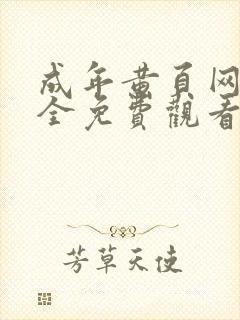 成年黄页网
全免費觀看
芳草天使